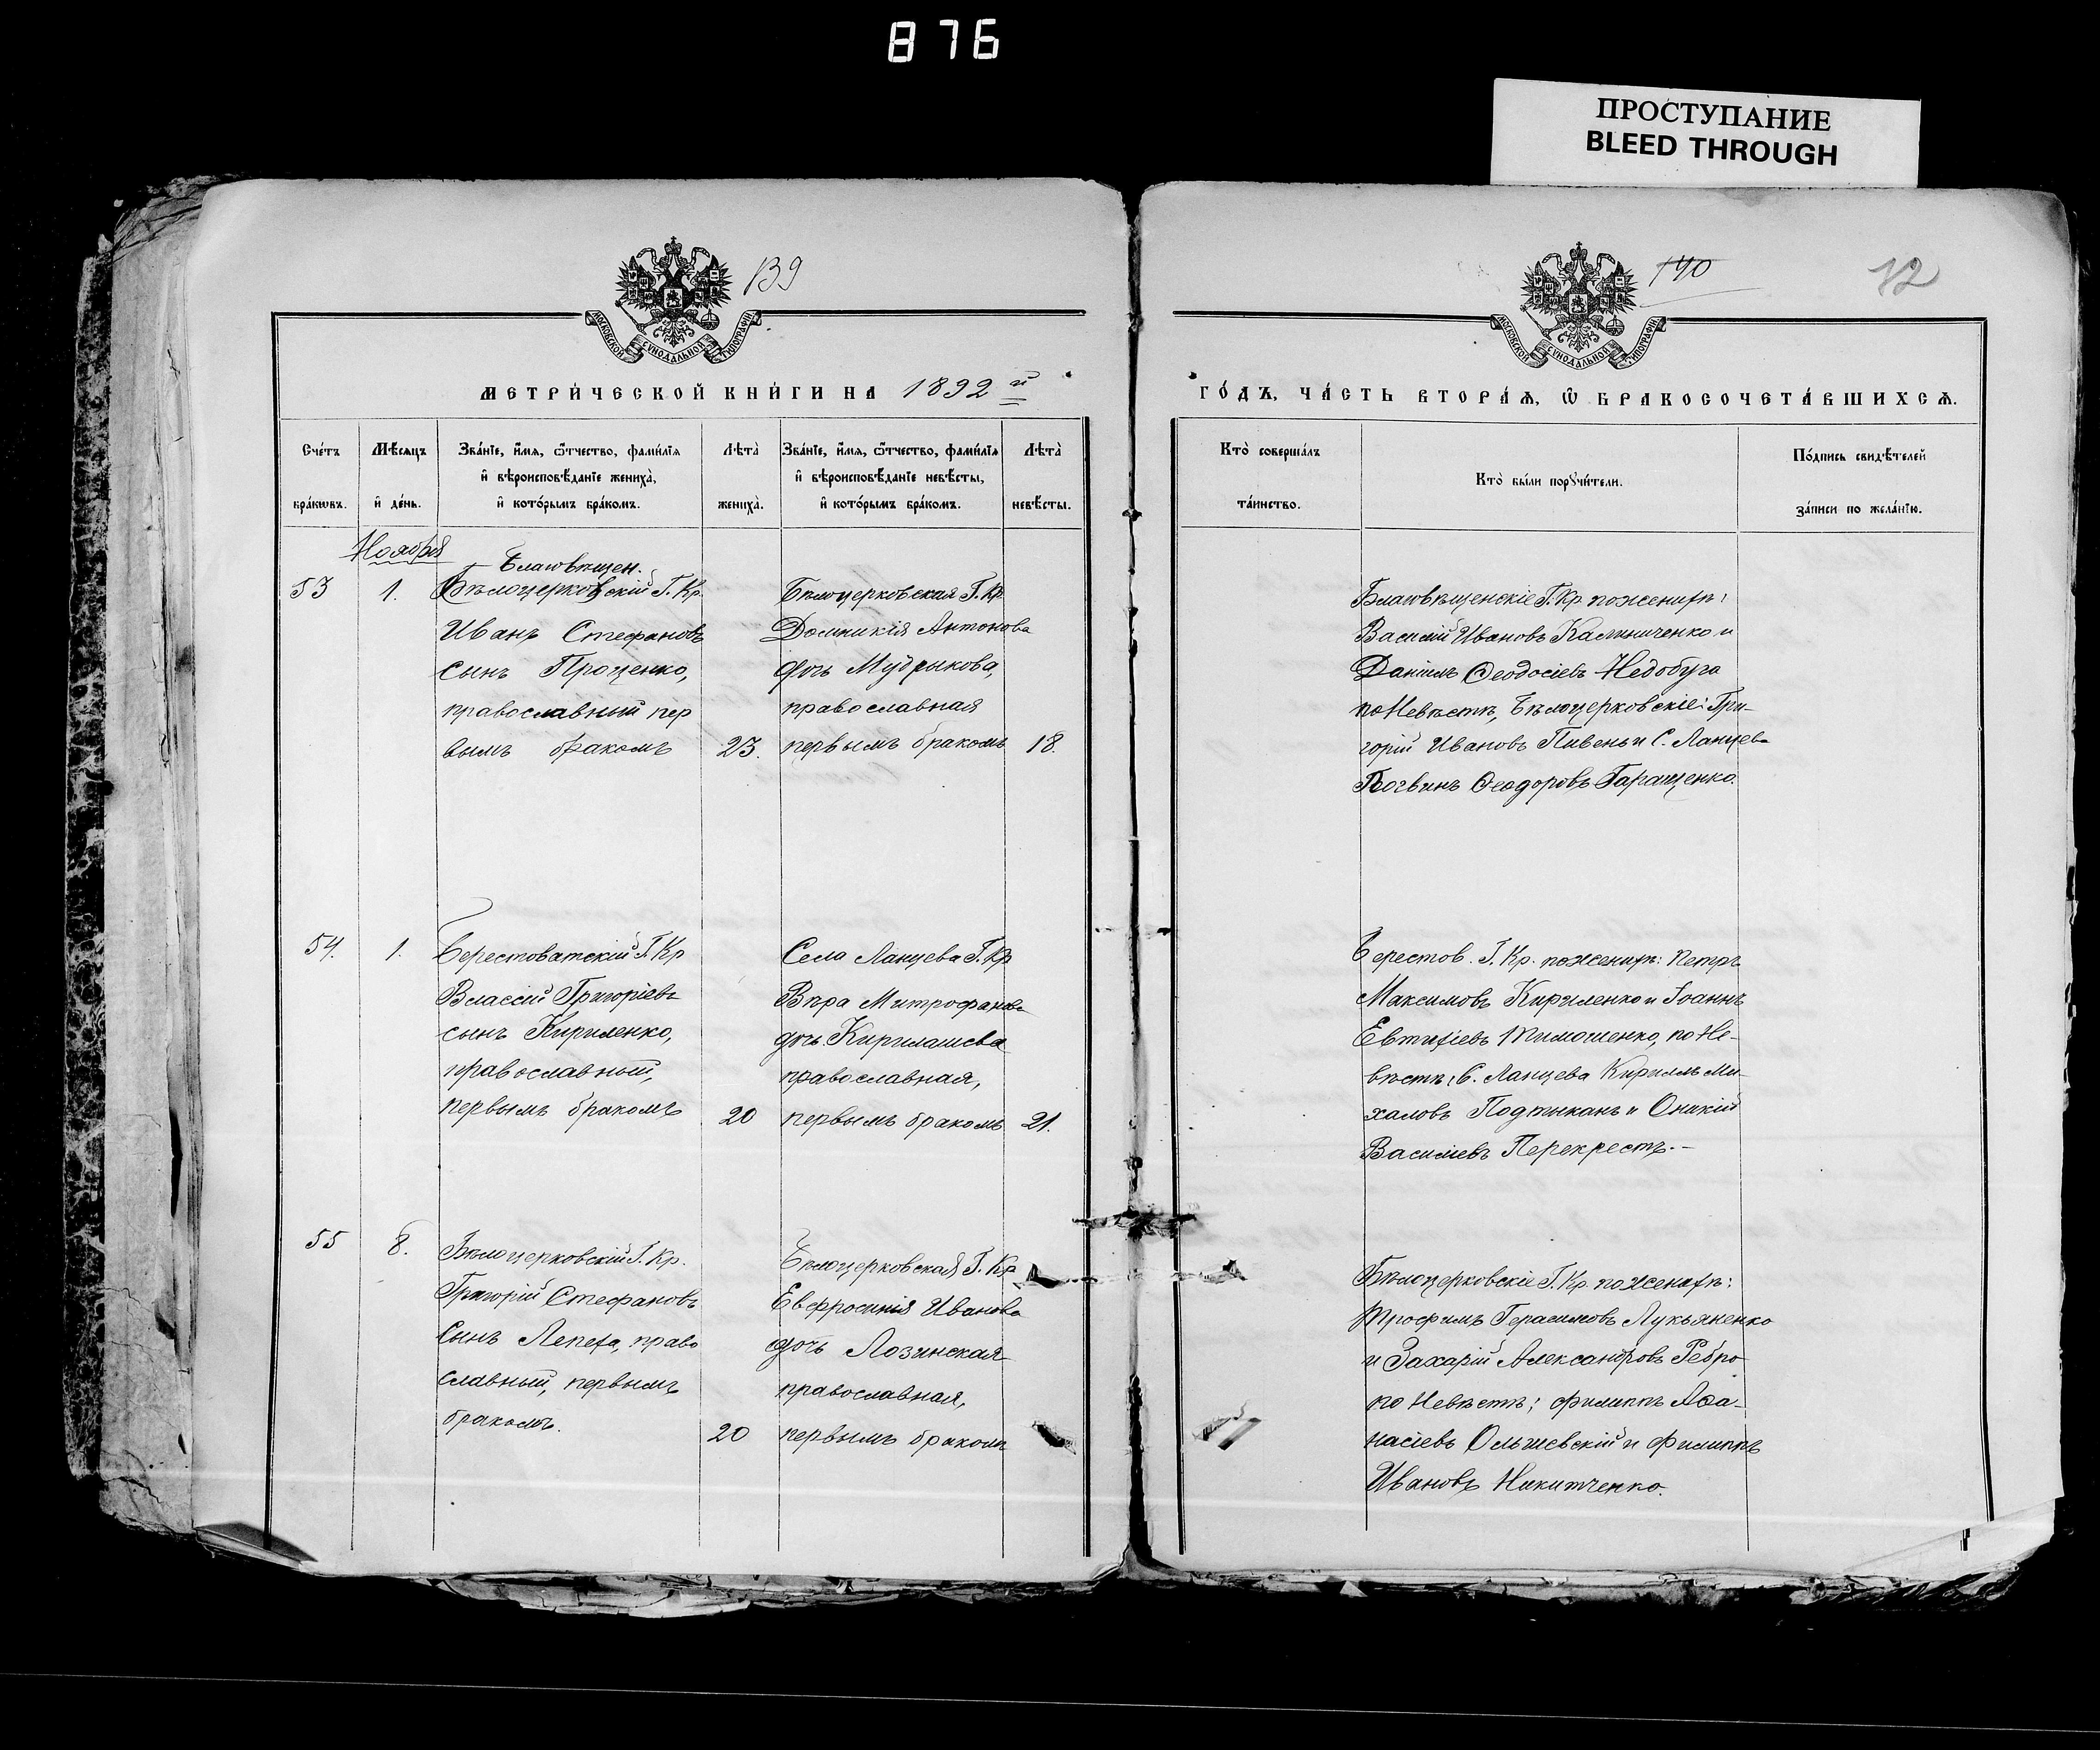 876
ПРОСТУПАНИЕ
BLEED THROUGH
139
МОСКОВСКОЙ СѴНОДАЛЬНОЙ ТИПОГРАФІИ
МЕТРИ́ЧЕСКОЙ КНИ́ГИ НА 1892 й
Сче́тъ бра́кѡвъ.
Мѣ́сяцъ и҆ де́нь.
Зва́нїе, и҆́мя, ѻ҆́тчество, фами́лїя
и҆ вѣроисповѣ́данїе жениха̀,
и҆ кото́рымъ бра́комъ.
Лѣта̀ жениха̀.
Зва́нїе, и҆́мя, ѻ҆́тчество, фами́лїя
и҆ вѣроисповѣ́данїе невѣ́сты,
и҆ кото́рымъ бра́комъ.
Лѣта̀ невѣ́сты.
Ноября
53
1.
Благовѣщен.
Бѣлоцерковскій Г. Кр.
Иванъ Стефановъ
сынъ Проценко,
православный пер
вымъ бракомъ
23.
Бѣлоцерковская Г. Кр
Домникія Антонова
дочь Мудрыкова,
православная
первымъ бракомъ
18.
54.
1.
Берестоватскій Г. Кр
Власій Григоріевъ
сынъ Кириленко,
православный,
первымъ бракомъ
20
Села Ланцева Г. Кр
Вѣра Митрофанова
дочь Кирилашева
православная,
первымъ бракомъ
21.
55
8.
Бѣлоцерковскій Г. Кр.
Григорій Стефановъ
сынъ Лепеха, право
славный, первымъ
бракомъ.
20
Бѣлоцерковская Г. Кр
Евфросинія Иванова
дочь Лозинская
православная,
первымъ бракомъ
140
12
МОСКОВСКОЙ СѴНОДАЛЬНОЙ ТИПОГРАФІИ
ГО́ДЪ, ЧА́СТЬ ВТОРА́Ѧ, Ѽ БРАКОСОЧЕТА́ВШИХСѦ.
Кто̀ соверша́лъ
та́инство.
Кто̀ бы́ли порꙋчи́тели.
По́дпись свидѣ́телей
за́писи по жела́нїю.
Благовѣщенскіе Г. Кр. по женихѣ:
Василій Ивановъ Калиниченко и
Даніилъ Ѳеодосіевъ Недобуга
по Невѣстѣ, Бѣлоцерковскіе: Гри-
горій Ивановъ Пивень и С. Ланцева
Логвинъ Ѳеодоровъ Гаращенко.
Берестов. Г. Кр. по женихѣ: Петръ
Максимовъ Кириленко и Іоаннъ
Евтихіевъ Тимошенко, по Не-
вѣстѣ: С. Ланцева Кириллъ Ми-
халовъ Подтыканъ и Оникій
Василіевъ Перекрестъ.-
Бѣлоцерковскіе Г. Кр. по женихѣ:
Трофимъ Герасимовъ Лукьяненко
и Захарій Александровъ Ребро
по Невѣстѣ; Филиппъ Аѳа-
насіевъ Ольшевскій и Филиппъ
Ивановъ Никитченко.